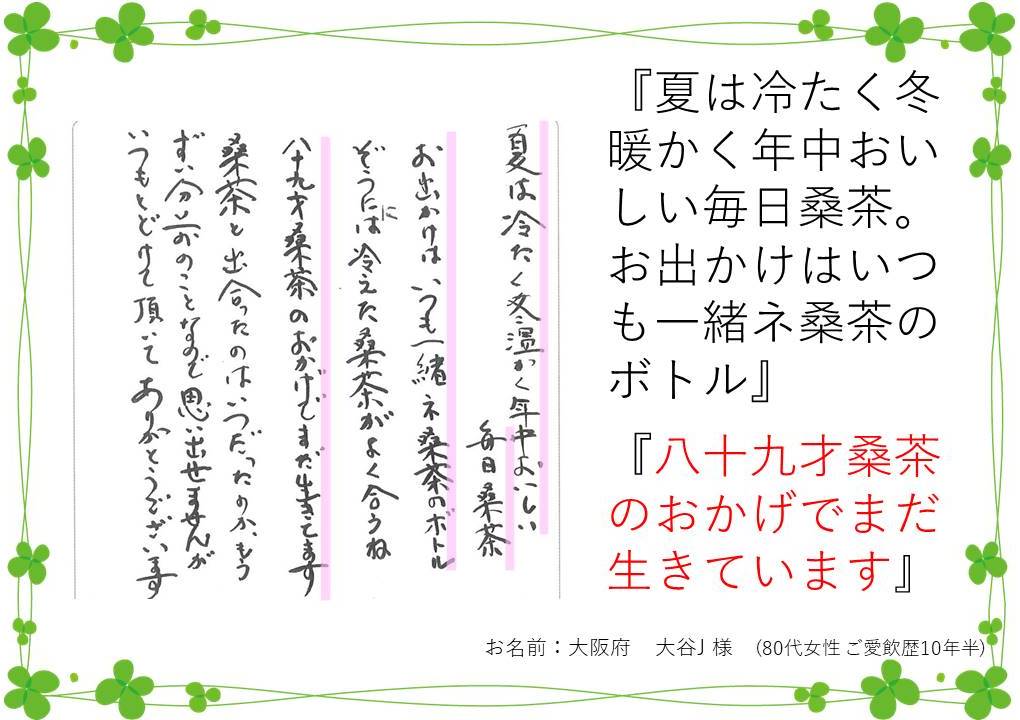 夏は冷たく冬温かく年中おいしい
毎日桑茶
お出かけはいつも一緒ネ桑茶のボトル
ぞうにには冷えた桑茶がよく合うね
八十九才桑茶のおかげでまだ生きてます
桑茶と出合ったのはいつだったのか、もう
ずい分前のことなので思い出せませんが
いつもとどけて頂いてありがとうございます
『夏は冷たく冬
暖かく年中おい
しい毎日桑茶。
お出かけはいつ
も一緒ネ桑茶の
ボトル』
『八十九才桑茶
のおかげでまだ
生きています』
お名前：大阪府　大谷J 様　(80代女性 ご愛飲歴10年半)